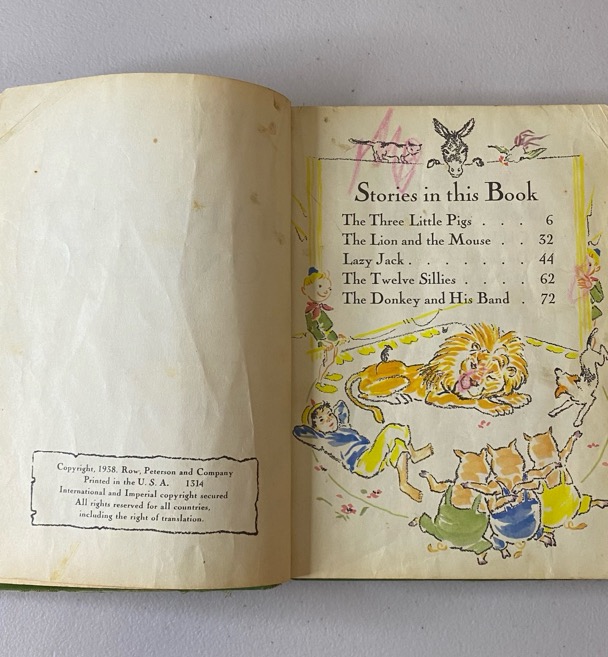 Copyright, 1938. Row, Peterson and Company
Printed in the U. S. A. 1314
International and Imperial copyright secured
All rights reserved for all countries,
including the right of translation.
Stories in this Book
The Three Little Pigs . . . 6
The Lion and the Mouse . . 32
Lazy Jack . . . . . . . 44
The Twelve Sillies . . . . 62
The Donkey and His Band . 72